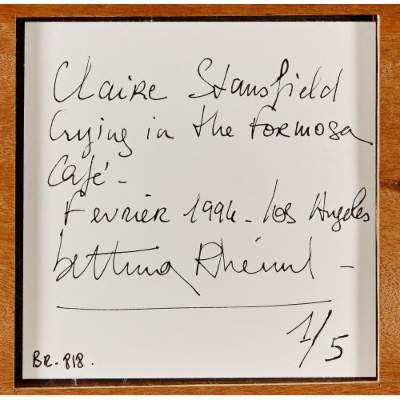 Claire Stansfield
Crying in the Formosa
Café-
Fevrier 1994. Los Angeles
Bettina Rheims -
1/5
BR. 818.